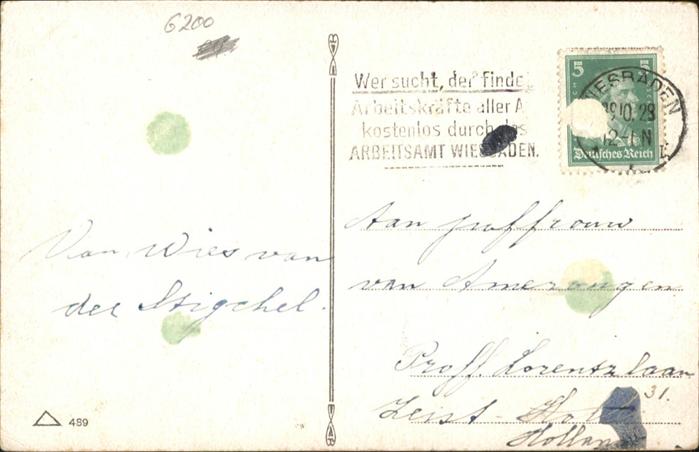 6200
Wer sucht, der finde
Arbeitskräfte aller A
kostenlos durch das
ARBEITSAMT WIESBADEN.
5 5
Deutsches Reich
WIESBADEN
10.28
12-1 N
Van Wies van
der Stigchel.
Aan juffrouw
van Amerongen
Proff. Lorentzlaan
31.
Zeist-
Holland
489